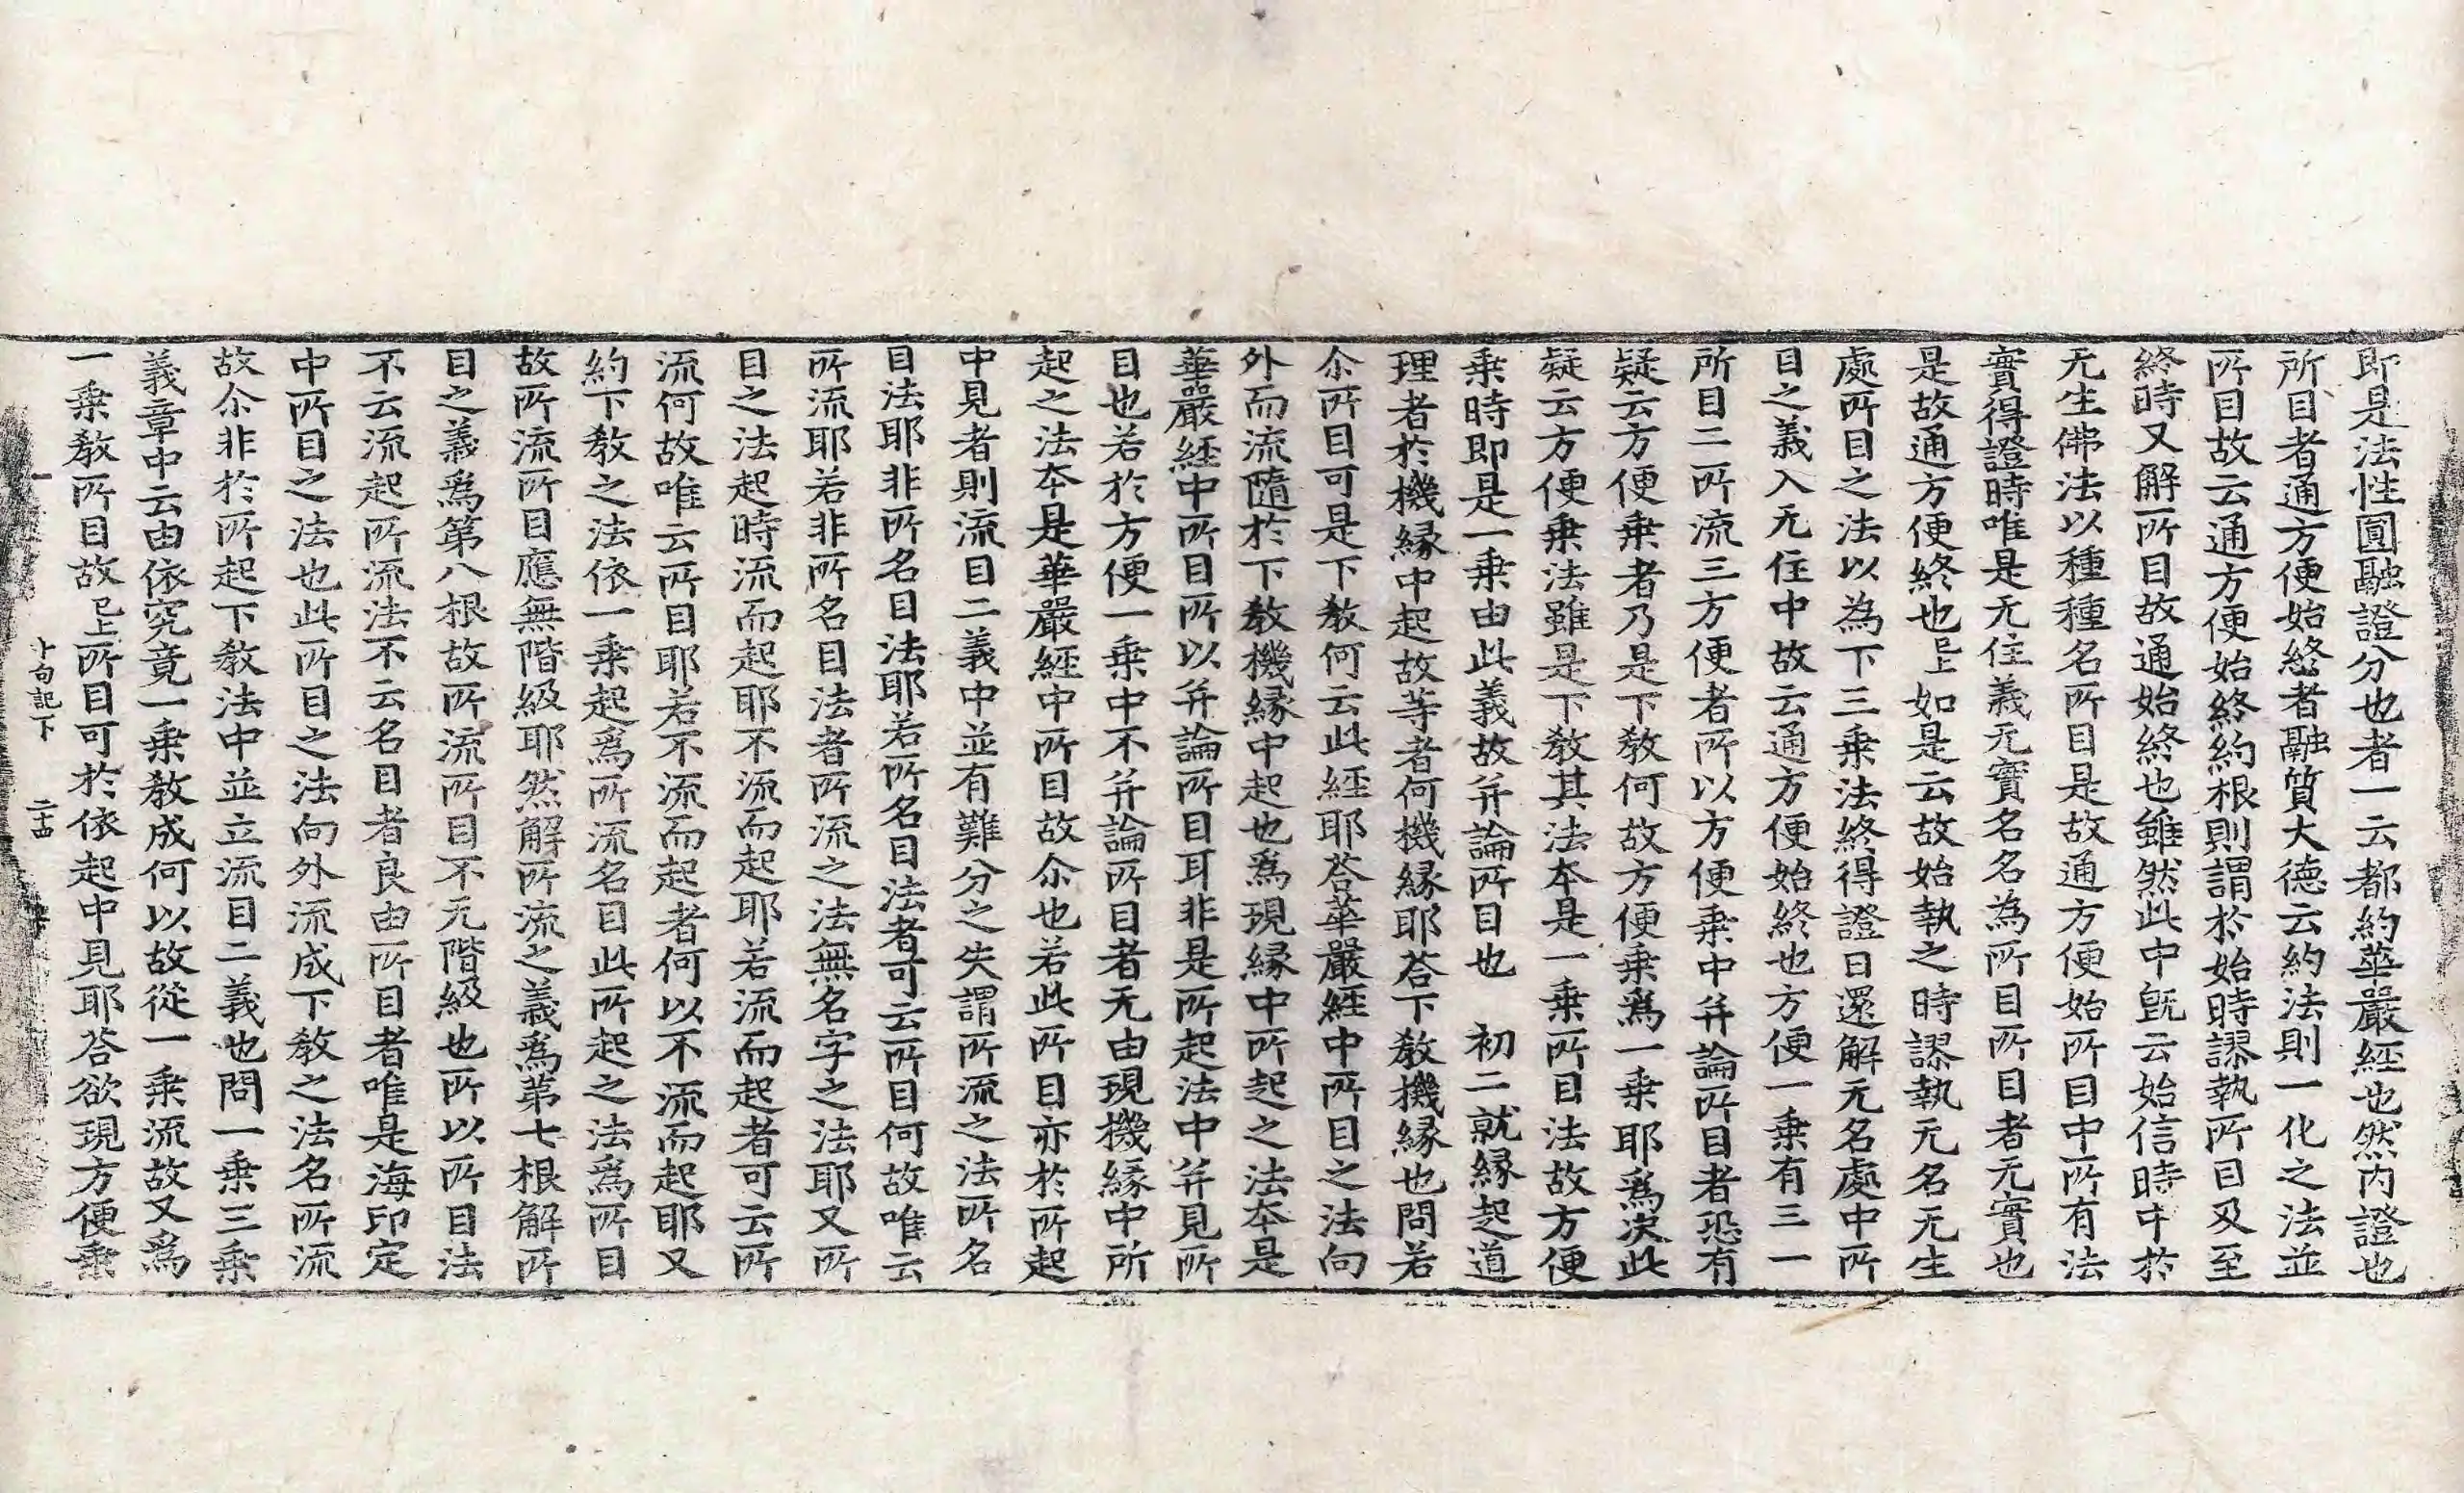 即是法性圓融證分也者一云都約華嚴經也然內證也
所目者通方便始終者融質大德云約法則一化之法並
所目故云通方便始終約根則謂於始時謬執所目又至
終時又解所目故通始終也雖然此中旣云始信時中於
无生佛法以種種名所目是故通方便始所目中所有法
實得證時唯是无住義无實名名為所目所目者无實也
是故通方便終也已上如是云故始執之時謬執无名无生
處所目之法以為下三乗法終得證日還解无名處中所
目之義入无住中故云通方便始終也方便一乗有三一
所目二所流三方便者所以方便乗中并論所目者恐有
疑云方便乗者乃是下敎何故方便乗爲一乗耶爲决此
疑云方便乗法雖是下敎其法本是一乗所目法故方便
乗時即是一乗由此義故并論所目也　初二就緣起道
理者於機緣中起故等者何機緣耶荅下敎機緣也問若
尒所目可是下敎何云此經耶荅華嚴經中所目之法向
外而流隨於下敎機緣中起也爲現緣中所起之法本是
華嚴經中所目所以并論所目耳非是所起法中并見所
目也若於方便一乗中不并論所目者无由現機緣中所
起之法本是華嚴經中所目故尒也若此所目亦於所起
中見者則流目二義中並有難分之失謂所流之法所名
目法耶非所名目法耶若所名目法者可云所目何故唯云
所流耶若非所名目法者所流之法無名字之法耶又所
目之法起時流而起耶不流而起耶若流而起者可云所
流何故唯云所目耶若不流而起者何以不流而起耶又
約下敎之法依一乗起爲所流名目此所起之法爲所目
故所流所目應無階級耶然解所流之義爲第七根解所
目之義爲第八根故所流所目不无階級也所以所目法
不云流起所流法不云名目者良由所目者唯是海印定
中所目之法也此所目之法向外流成下敎之法名所流
故尒非於所起下敎法中並立流目二義也問一乗三乗
義章中云由依究竟一乗敎成何以故從一乗流故又爲
一乗敎所目故已上所目可於依起中見耶荅欲現方便乗
十句記下　二十四